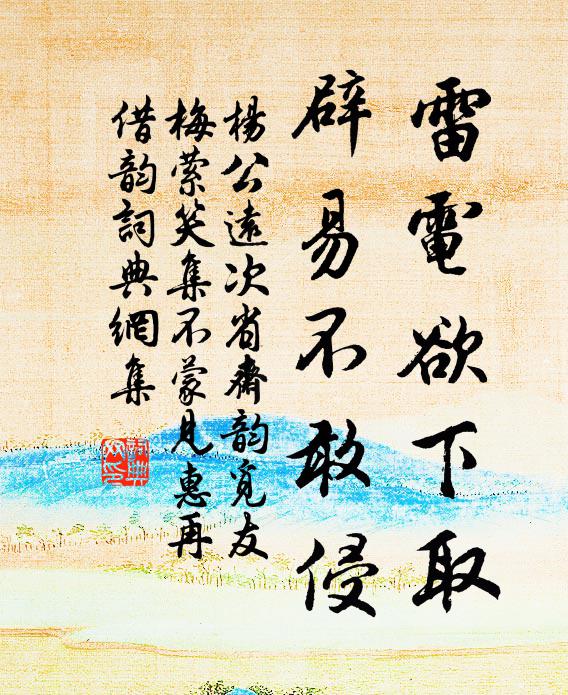 雷電欲下取
辟易不敢侵
楊公遠次省齋韵覓友
梅縈笑集不蒙見惠再
借韵詞典網集